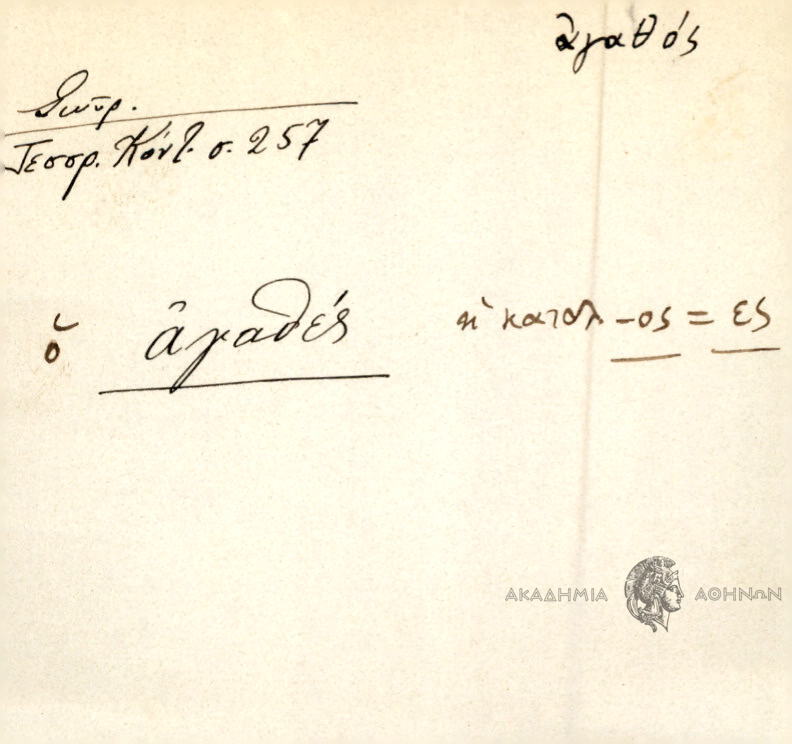 ἀγαθός
Σκῦρ.
Τεσσρ. Κόντ. σ. 257
ὁ ἀγαθές ἡ καταλ -ος = ες
ΑΚΑΔΗΜΙΑ ΑΘΗΝΩΝ